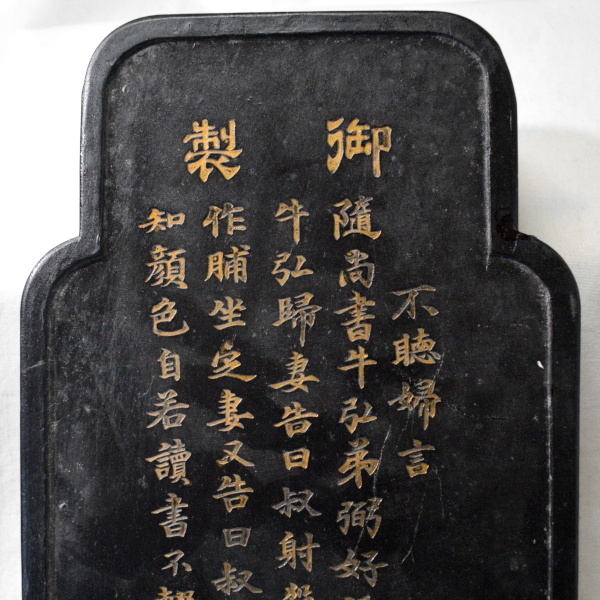 御製
不聴婦言
隨尚書牛弘弟弼好
牛弘歸妻告曰叔射
作脯坐定妻又告曰叔
知顏色自若讀書不